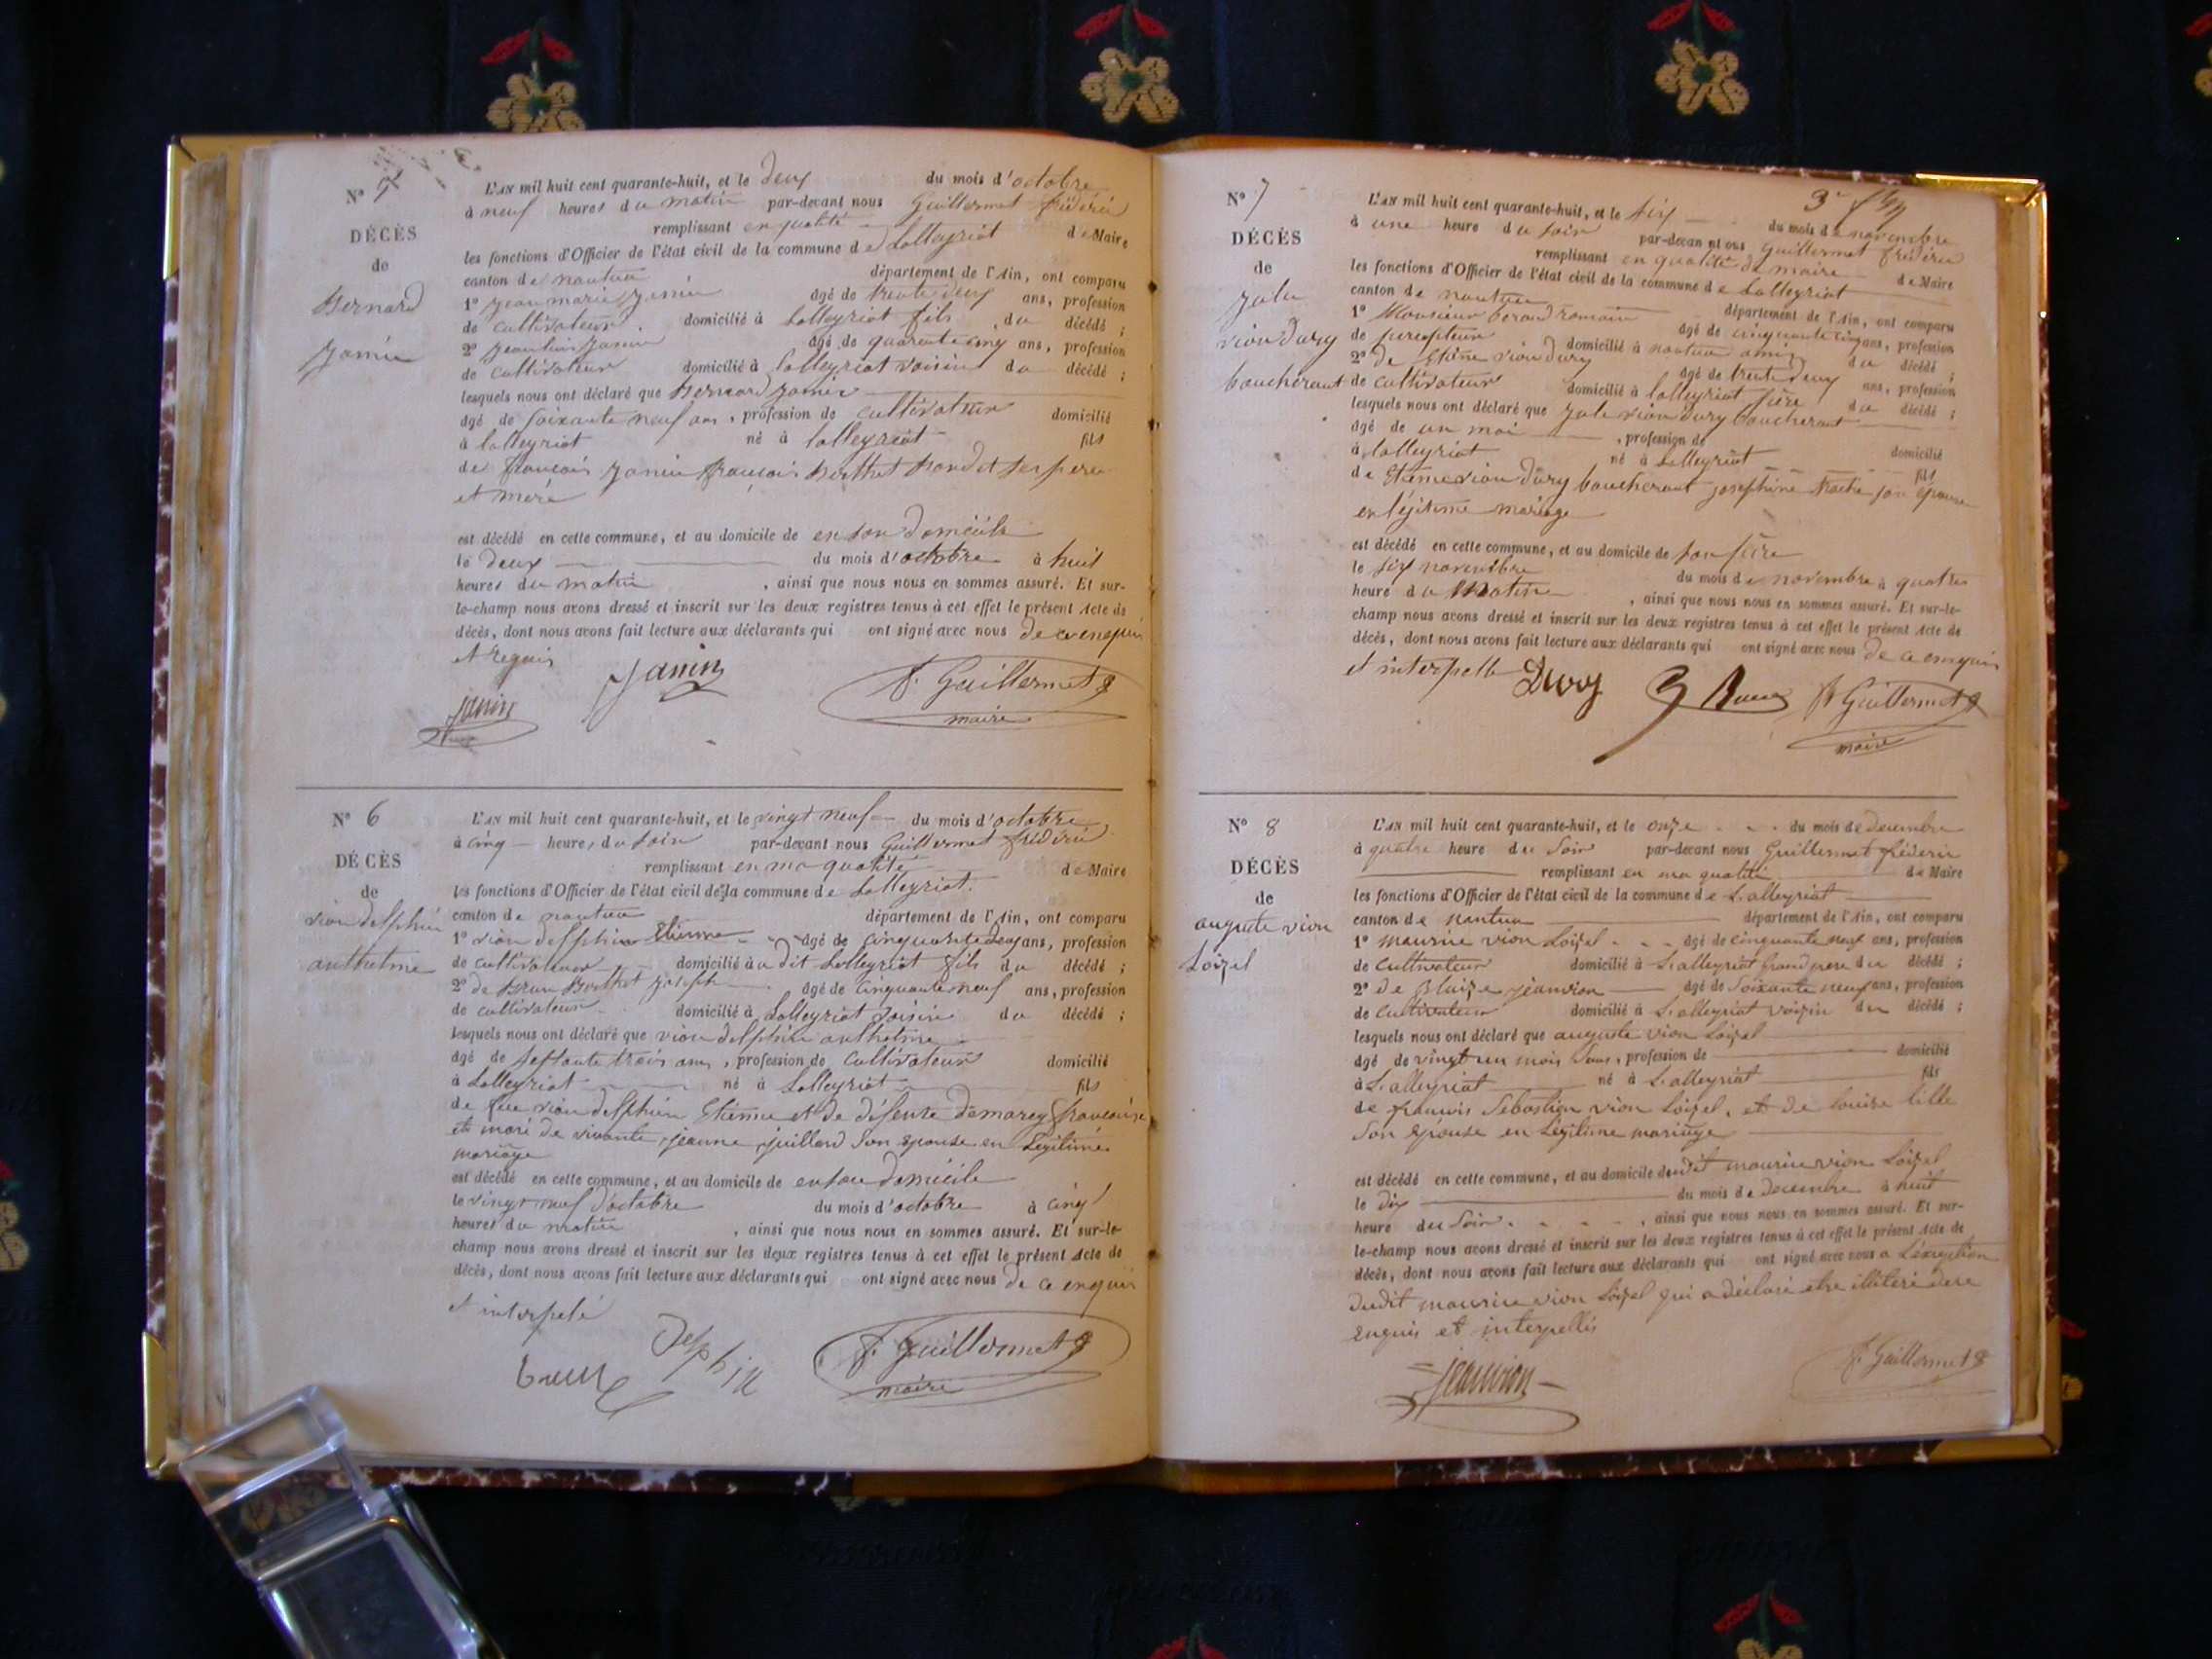 N° 5
DÉCÈS
de
Bernard
Janin
L'AN mil huit cent quarante-huit, et le deux du mois d'octobre
à neuf heures du matin par-devant nous Guillermet frédéric
remplissant en qualité de Maire
les fonctions d'Officier de l'état civil de la commune de Lalleyriat
canton de nantua département de l'Ain, ont comparu
1° jean marie janin âgé de trente deux ans, profession
de cultivateur domicilié à Lalleyriat fils du décédé ;
2° janin âgé de quarante cinq ans, profession
de cultivateur domicilié à lalleyriat voisin du décédé ;
lesquels nous ont déclaré que Bernard janin
âgé de soixante neuf ans, profession de cultivateur domicilié
à lalleyriat né à lalleyriat fils
de françois janin Berthet ses pere
et mere
est décédé en cette commune, et au domicile de en son domicile
le deux du mois d'octobre à huit
heures du matin, ainsi que nous nous en sommes assuré. Et sur-
le-champ nous avons dressé et inscrit sur les deux registres tenus à cet effet le présent Acte de
décès, dont nous avons fait lecture aux déclarants qui ont signé avec nous de ce enquis
et requis
janin Janin f. Guillermet
maire
N° 6
DÉCÈS
de
vion delphin
anthelme
L'AN mil huit cent quarante-huit, et le vingt neuf du mois d'octobre
à cinq heures du soir par-devant nous Guillermet frédéric
remplissant en ma qualité de Maire
les fonctions d'Officier de l'état civil de la commune de Lalleyriat.
canton de nantua département de l'Ain, ont comparu
1° vion delphin Etienne âgé de cinquante deux ans, profession
de cultivateur domicilié à udit Lalleyriat fils du décédé ;
2° de Brun Berthet joseph âgé de cinquante neuf ans, profession
de cultivateur domicilié à Lalleyriat voisin du décédé ;
lesquels nous ont déclaré que vion delphin anthelme
âgé de septante trois ans, profession de cultivateur domicilié
à Lalleyriat né à Lalleyriat fils
de feu vion delphin Etienne et de défunte demarey francoise
et mari de vivante jeanne juillard son épouse en Légitime
mariage
est décédé en cette commune, et au domicile de en son domicile
le vingt neuf d'octobre du mois d'octobre à cinq
heures du matin, ainsi que nous nous en sommes assuré. Et sur-le-
champ nous avons dressé et inscrit sur les deux registres tenus à cet effet le présent Acte de
décès, dont nous avons fait lecture aux déclarants qui ont signé avec nous de ce enquis
et interpelé
brun delphin f. Guillermet
maire
3e
N° 7
DÉCÈS
de
jule
vion dury
boucherant
L'AN mil huit cent quarante-huit, et le six du mois de novembre
à une heure du soir par-devant nous Guillermet frédéric
remplissant en qualité de maire de Maire
les fonctions d'Officier de l'état civil de la commune de Lalleyriat
canton de nantua département de l'Ain, ont comparu
1° Monsieur romain âgé de cinquante cinq ans, profession
de percepteur domicilié à nantua ami du décédé ;
2° de Etiene vion dury âgé de trente deux ans, profession
de cultivateur domicilié à lalleyriat père du décédé ;
lesquels nous ont déclaré que jule vion dury boucherant
âgé de un moi, profession de domicilié
à lalleyriat né à Lalleyriat fils
de Etiene vion dury boucherant josephine son épouse
en légitime mariage
est décédé en cette commune, et au domicile de son père
le six novembre du mois de novembre à quatre
heure du matin, ainsi que nous nous en sommes assuré. Et sur-le-
champ nous avons dressé et inscrit sur les deux registres tenus à cet effet le présent Acte de
décès, dont nous avons fait lecture aux déclarants qui ont signé avec nous de ce enquis
et interpelle
f. Guillermet
maire
N° 8
DÉCÈS
de
auguste vion
Loizel
L'AN mil huit cent quarante-huit, et le onze du mois de decembre
à quatre heure du Soir par-devant nous Guillermet fréderic
remplissant en ma qualité de Maire
les fonctions d'Officier de l'état civil de la commune de Lalleyriat
canton de Nantua département de l'Ain, ont comparu
1° maurice vion Loizel âgé de cinquante neuf ans, profession
de Cultivateur domicilié à Lalleyriat grand pere du décédé ;
2° de Blaize jeanvion âgé de Soixante neuf ans, profession
de Cultivateur domicilié à Lalleyriat voizin du décédé ;
lesquels nous ont déclaré que auguste vion Loizel
âgé de vingt un mois, profession de domicilié
à Lalleyriat né à Lalleyriat fils
de francois Sebastien vion Loizel, et de louise lille
Son épouse en Légitime mariage
est décédé en cette commune, et au domicile dudit maurice vion Loizel
le dix du mois de decembre à huit
heure du Soir, ainsi que nous nous en sommes assuré. Et sur-
le-champ nous avons dressé et inscrit sur les deux registres tenus à cet effet le présent Acte de
décès, dont nous avons fait lecture aux déclarants qui ont signé avec nous a L'exception
dudit maurice vion Loizel qui a déclaré etre illiteré dece
enquis et interpellés
jeanvion f. Guillermet